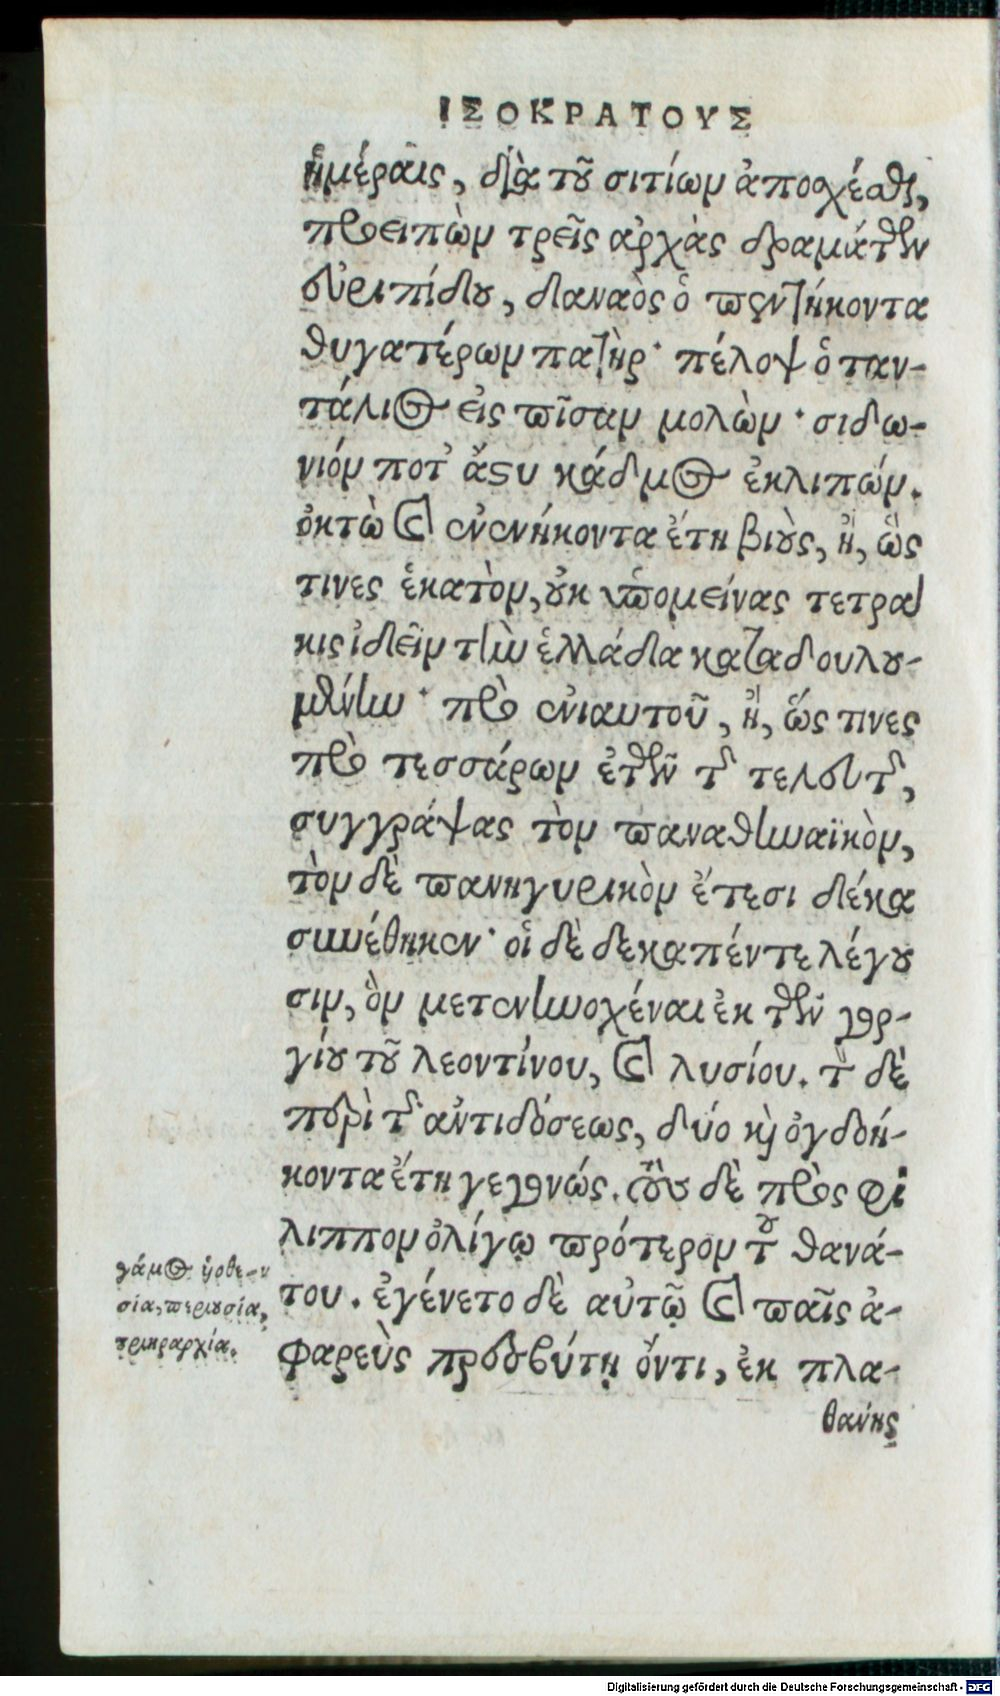 ΙΣΟΚΡΑΤΟΥΣ
ἡμέραις, διὰ τοῦ σιτίων ἀποσχέσθαι,
προειπὼν τρεῖς ἀρχὰς δραμάτων
εὐριπίδου, δαναὸς ὁ πεντήκοντα
θυγατέρων πατὴρ· πέλοψ ὁ ταν-
τάλειος εἰς πῖσαν μολὼν· σιδω-
νιόν ποτ' ἄστυ κάδμος ἐκλιπών.
ὀκτὼ καὶ ἐνενήκοντα ἔτη βιοὺς, ἢ, ὥς
τινες ἑκατὸν, οὐκ ὑπομείνας τετρά
κις ἰδεῖν τὴν ἑλλάδα καταδουλου-
μένην· πρὸ ἐνιαυτοῦ, ἢ, ὥς τινες
πρὸ τεσσάρων ἐτῶν τῆς τελευτῆς,
συγγράψας τὸν παναθηναϊκὸν,
τὸν δὲ πανηγυρικὸν ἔτεσι δέκα
συνέθηκεν· οἱ δὲ δεκαπέντε λέγου
σιν, ὃν μετενηνοχέναι ἐκ τῶν γορ-
γίου τοῦ λεοντίνου, καὶ λυσίου. τὸν δὲ
περὶ τῆς ἀντιδόσεως, δύο καὶ ὀγδοή-
κοντα ἔτη γεγονώς. τοὺς δὲ πρὸς φί
λιππον ὀλίγῳ πρότερον τοῦ θανά-
του. ἐγένετο δὲ αὐτῷ καὶ παῖς ἀ-
φαρεὺς πρεσβύτῃ ὄντι, ἐκ πλα-
θάνης
γάμος ὑοθε-
σία, περιουσία,
τριηραρχία.
Digitalisierung gefördert durch die Deutsche Forschungsgemeinschaft - DFG